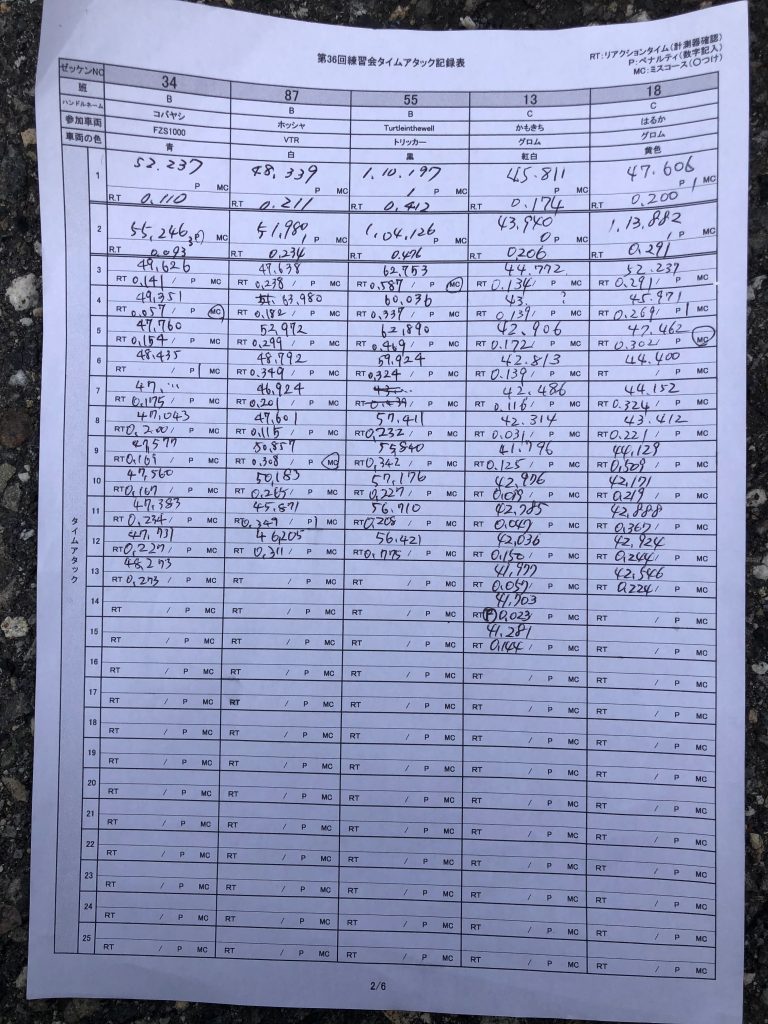 第36回練習会タイムアタック記録表
RT:リアクションタイム(計測器確認)
P:ペナルティ(数字記入)
MC:ミスコース(○つけ)
ゼッケンNO 34 87 55 13 18
班 B B B C C
ハンドルネーム コバヤシ ホッシャ Turtleinthewell かもきち はるか
参加車両 FZS1000 VTR トリッカー グロム グロム
車両の色 青 白 黒 紅白 黄色
タイムアタック
1 52.237 48.339 1.10.197 45.811 47.606
P MC P MC 1 P MC P MC P 1 MC
R.T 0.110 R.T 0.211 R.T 0.412 R.T 0.174 R.T 0.200
2 55.246 51.980 1.04.126 43.940 1.13.882
3 P) MC 1 P MC 1 P MC 0 P MC 1 P MC
R.T 0.093 R.T 0.234 R.T 0.476 R.T 0.206 R.T 0.291
3 49.626 47.638 62.753 44.772 52.237
RT 0.141 / P MC RT 0.238 / P MC RT 0.587 / P MC RT 0.134 / P MC RT 0.291 / P MC
4 49.351 63.980 60.036 43. ? 45.971
RT 0.057 / P MC RT 0.182 / P MC RT 0.337 / P MC RT 0.139 / P MC RT 0.269 / P 1 MC
5 47.760 52.972 62.890 42.906 47.462
RT 0.154 / P MC RT 0.299 / P MC RT 0.469 / P MC RT 0.172 / P MC RT 0.302 / P MC
6 48.435 48.792 59.924 42.813 44.400
RT / P 1 MC RT 0.349 / P MC RT 0.324 / P MC RT 0.139 / P MC RT / P MC
7 47.... 46.924 42.486 44.152
RT 0.175 / P MC RT 0.201 / P MC RT 0.439 / P MC RT 0.116 / P MC RT 0.324 / P MC
8 47.043 47.601 57.411 42.314 43.412
RT 0.200 / P MC RT 0.115 / P MC RT 0.232 / P MC RT 0.031 / P MC RT 0.221 / P MC
9 47.577 50.857 55.840 41.796 44.129
RT 0.169 / P MC RT 0.308 / P MC RT 0.342 / P MC RT 0.125 / P MC RT 0.509 / P MC
10 47.560 50.183 57.176 42.976 42.171
RT 0.167 / P MC RT 0.265 / P MC RT 0.227 / P MC RT 0.089 / P MC RT 0.219 / P MC
11 47.383 45.871 56.710 42.785 42.888
RT 0.234 / P MC RT 0.347 / P 1 MC RT 0.208 / P MC RT 0.047 / P MC RT 0.367 / P MC
12 47.731 46.205 56.421 42.036 42.924
RT 0.227 / P MC RT 0.311 / P MC RT 0.775 / P MC RT 0.150 / P MC RT 0.244 / P MC
13 48.273 41.977 42.546
RT 0.273 / P MC RT / P MC RT / P MC RT 0.057 / P MC RT 0.224 / P MC
14 41.703
RT / P MC RT / P MC RT / P MC RT F 0.023 P MC RT / P MC
15 41.281
RT / P MC RT / P MC RT / P MC RT 0.144 / P MC RT / P MC
16
RT / P MC RT / P MC RT / P MC RT / P MC RT / P MC
17
RT / P MC RT / P MC RT / P MC RT / P MC RT / P MC
18
RT / P MC RT / P MC RT / P MC RT / P MC RT / P MC
19
RT / P MC RT / P MC RT / P MC RT / P MC RT / P MC
20
RT / P MC RT / P MC RT / P MC RT / P MC RT / P MC
21
RT / P MC RT / P MC RT / P MC RT / P MC RT / P MC
22
RT / P MC RT / P MC RT / P MC RT / P MC RT / P MC
23
RT / P MC RT / P MC RT / P MC RT / P MC RT / P MC
24
RT / P MC RT / P MC RT / P MC RT / P MC RT / P MC
25
RT / P MC RT / P MC RT / P MC RT / P MC RT / P MC
2/6